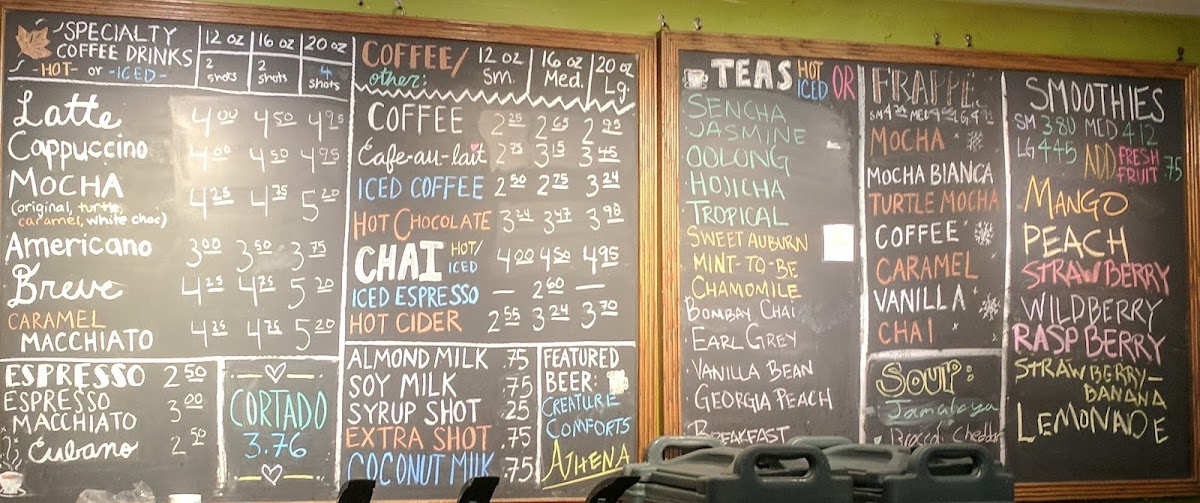 SPECIALTY
COFFEE DRINKS
-HOT- or -ICED-
12 oz 16 oz 20 oz
2 shots 2 shots 4 shots
Latte 4.00 4.50 4.95
Cappuccino 4.00 4.50 4.95
MOCHA 4.25 4.75 5.20
(original, turtle,
caramel, white choc)
Americano 3.00 3.50 3.75
Breve 4.25 4.75 5.20
CARAMEL
MACCHIATO 4.25 4.75 5.20
ESPRESSO 2.50
ESPRESSO
MACCHIATO 3.00
Cubano 2.50
CORTADO
3.76
COFFEE/
other:
12 oz Sm. 16 oz Med. 20 oz Lg.
COFFEE 2.25 2.65 2.95
Cafe-au-lait 2.75 3.15 3.45
ICED COFFEE 2.50 2.75 3.24
HOT CHOCOLATE 3.24 3.47 3.98
CHAI HOT/ICED 4.00 4.50 4.95
ICED ESPRESSO — 2.60 —
HOT CIDER 2.55 3.24 3.70
ALMOND MILK .75
SOY MILK .75
SYRUP SHOT .25
EXTRA SHOT .75
COCONUT MILK .75
FEATURED
BEER:
CREATURE
COMFORTS
ATHENA
TEAS HOT OR ICED
SENCHA
JASMINE
OOLONG
HOJICHA
TROPICAL
SWEET AUBURN
MINT-TO-BE
CHAMOMILE
BOMBAY CHAI
EARL GREY
VANILLA BEAN
GEORGIA PEACH
BREAKFAST
FRAPPE
MOCHA
MOCHA BIANCA
TURTLE MOCHA
COFFEE
CARAMEL
VANILLA
CHAI
SOUP:
Jambalaya
Broccoli Cheddar
SMOOTHIES
SM 3.80 MED 4.12
LG 4.45 ADD FRESH FRUIT .75
MANGO
PEACH
STRAWBERRY
WILDBERRY
RASPBERRY
STRAWBERRY-
BANANA
LEMONADE